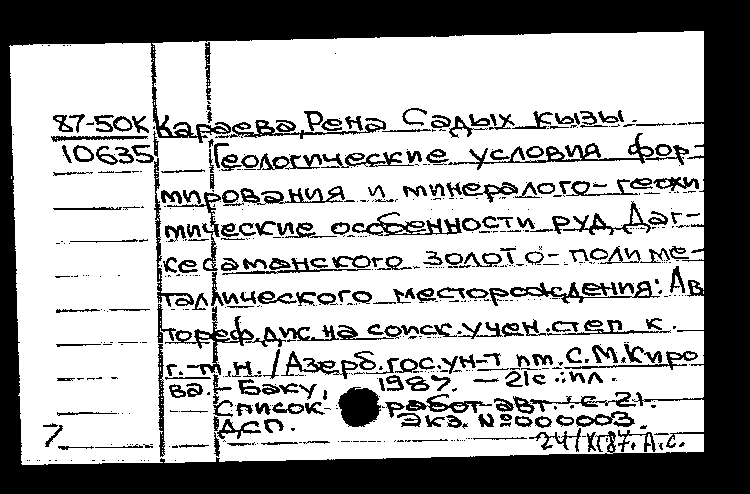 87-50К Караева, Рена Садых кызы.
10635 Геологические условия фор-
мирования и минералого-геохи
мические особенности руд Даг-
кесаманского золото-полиме-
таллического месторождения: Ав
тореф. дис. на соиск. учен. степ. к.
г.-м.н. / Азерб. гос. ун-т им. С.М. Киро
ва. - Баку, 1987. - 21с.: ил.
Список работ авт.: с. 21.
ДСП. Экз. №000003.
7 24/XI87. А.с.